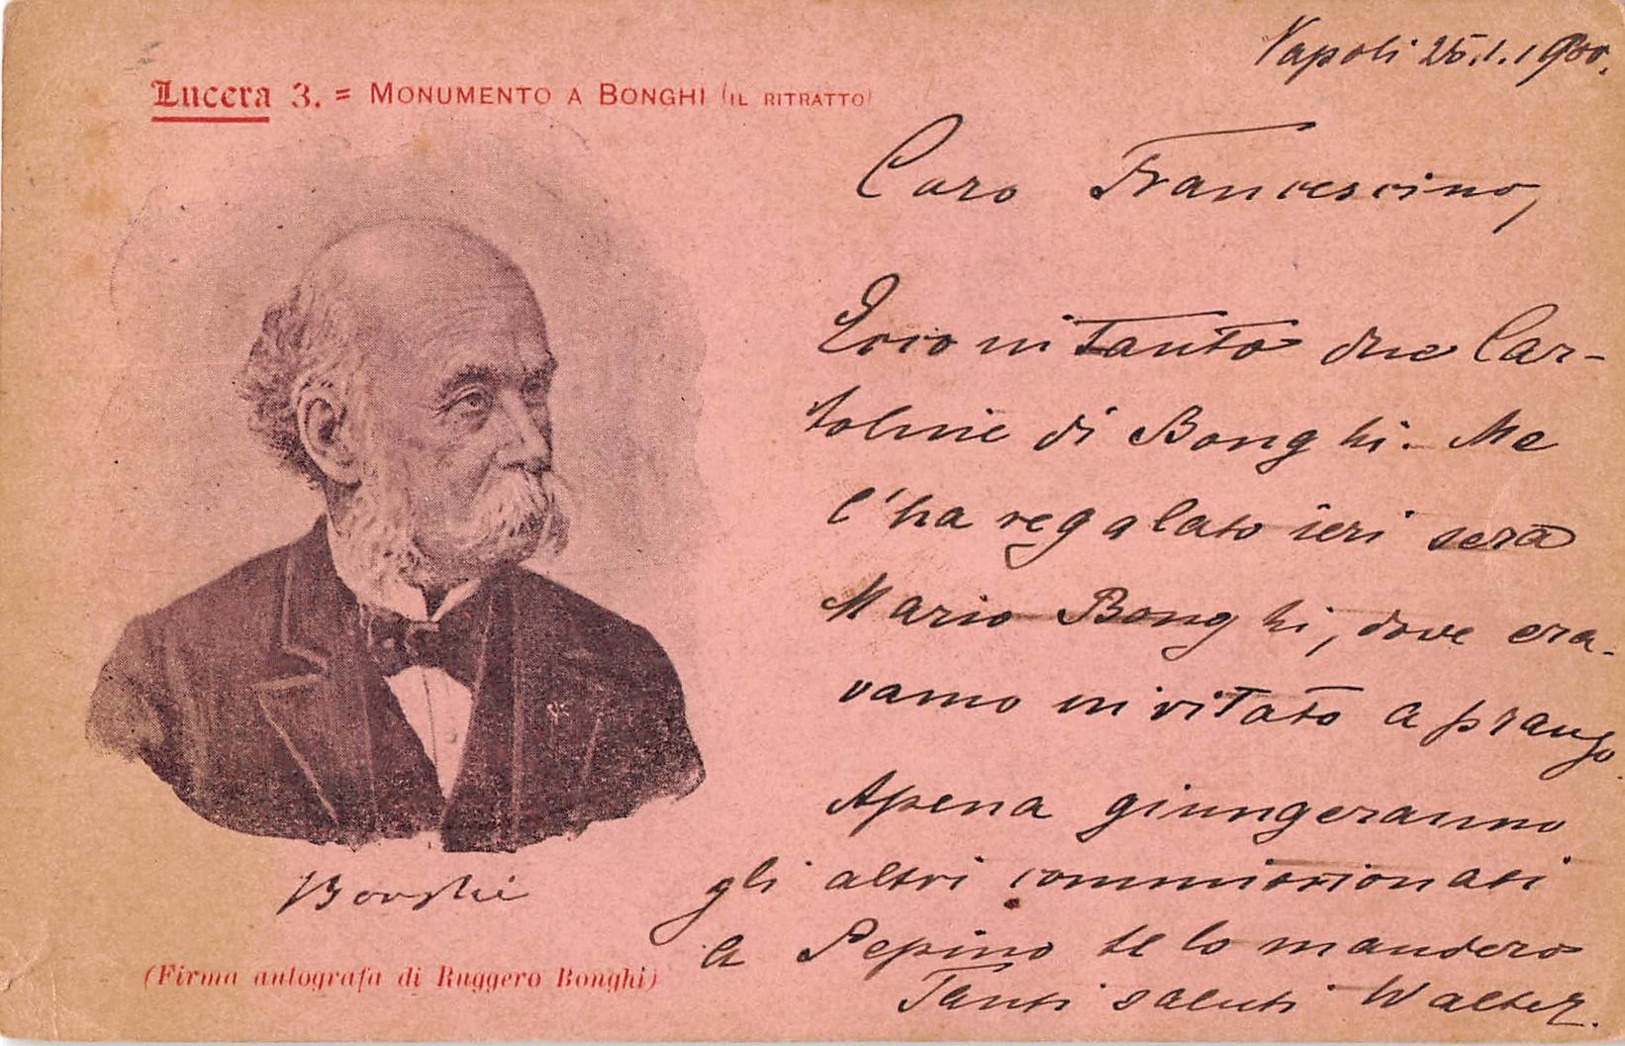 Lucera 3. = MONUMENTO A BONGHI (IL RITRATTO)
Napoli 25.1.1900.
Caro Francescino,
Ecconi tanto due Car-
toline di Bonghi. Me
l'ha regalato ieri sera
Mario Bonghi, dove era-
vamo invitato a prango.
Apena giungeranno
gli altri commissionati
a Pepino te lo mandero
Tanti saluti Walter.
Bonghi
(Firma autografa di Ruggero Bonghi)